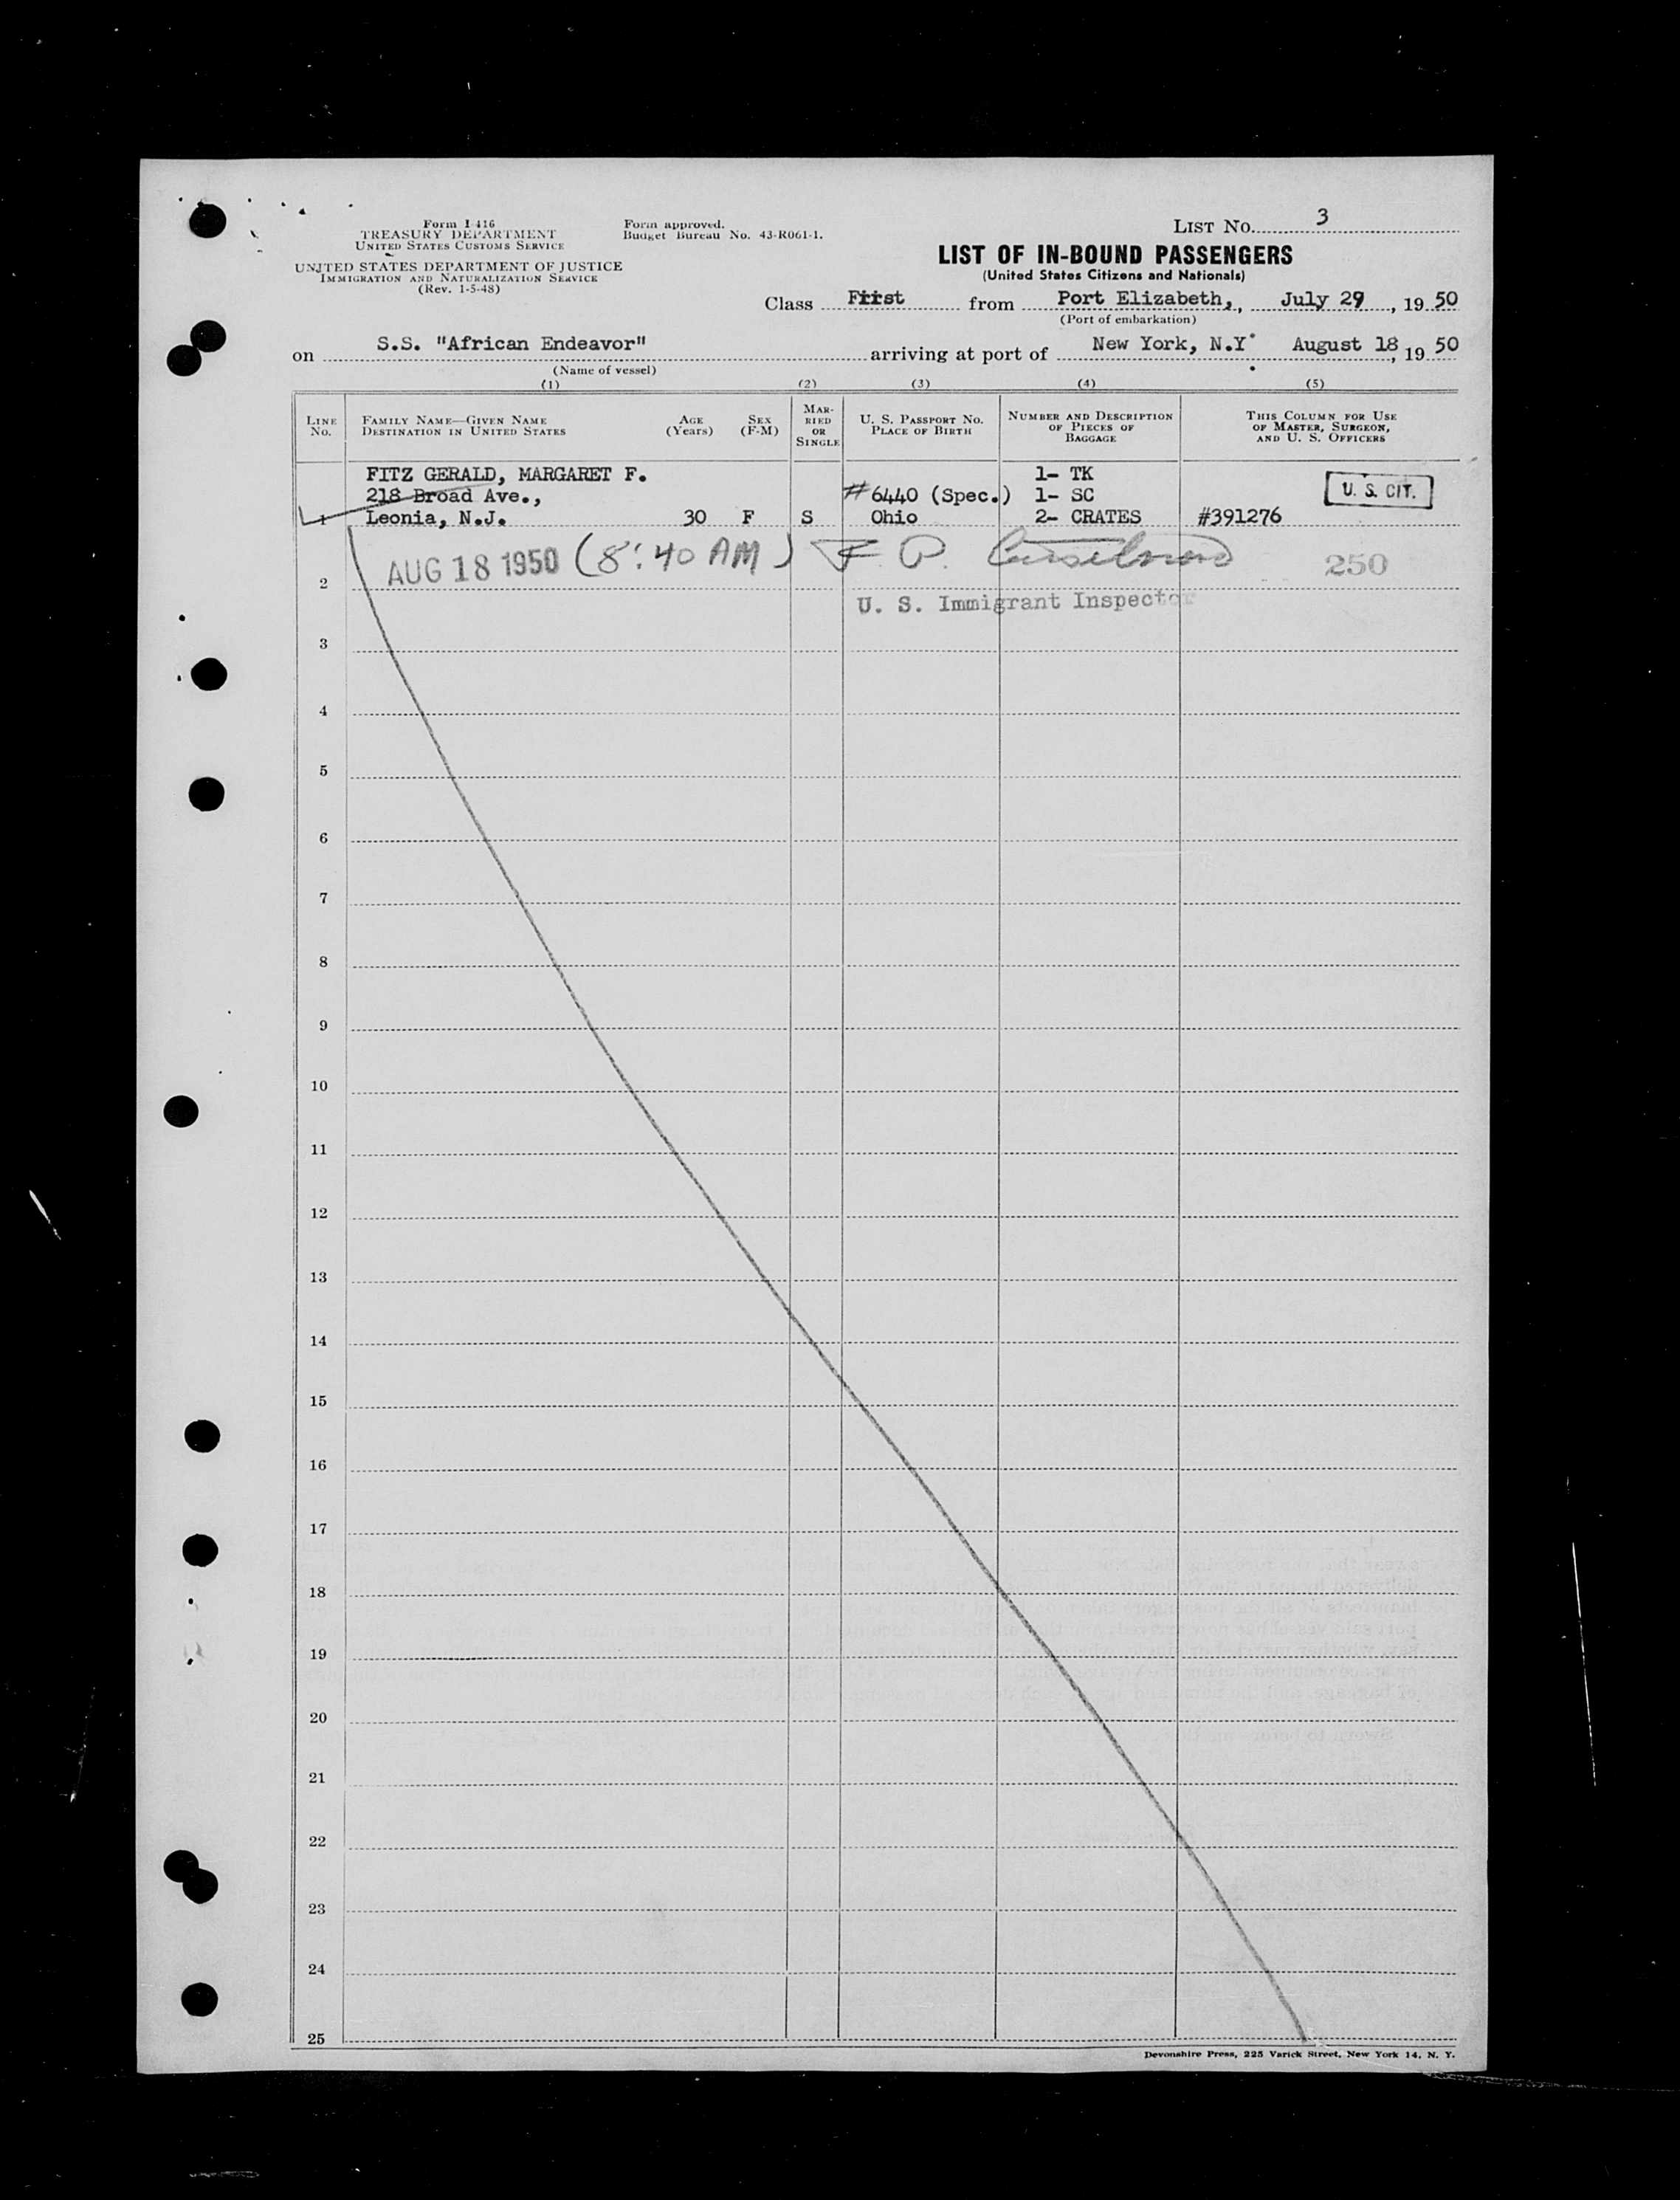 Form I 416
TREASURY DEPARTMENT
UNITED STATES CUSTOMS SERVICE
UNITED STATES DEPARTMENT OF JUSTICE
IMMIGRATION AND NATURALIZATION SERVICE
(Rev. 1-5-48)
Form approved.
Budget Bureau No. 43-R061-1.
LIST No. 3
LIST OF IN-BOUND PASSENGERS
(United States Citizens and Nationals)
Class First from Port Elizabeth, July 29, 1950
(Port of embarkation)
on S.S. "African Endeavor" arriving at port of New York, N.Y. August 18, 1950
(Name of vessel)
(1) (2) (3) (4) (5)
LINE No. FAMILY NAME—GIVEN NAME DESTINATION IN UNITED STATES AGE (Years) SEX (F-M) MARRIED OR SINGLE U. S. PASSPORT No. PLACE OF BIRTH NUMBER AND DESCRIPTION OF PIECES OF BAGGAGE THIS COLUMN FOR USE OF MASTER, SURGEON, AND U. S. OFFICERS
FITZ GERALD, MARGARET F. 1- TK
218 Broad Ave., #6440 (Spec.) 1- SC U. S. CIT.
1 Leonia, N.J. 30 F S Ohio 2- CRATES #391276
AUG 18 1950 (8:40 AM) F. P. 250
2
U. S. Immigrant Inspector
3
4
5
6
7
8
9
10
11
12
13
14
15
16
17
18
19
20
21
22
23
24
25
Devonshire Press, 225 Varick Street, New York 14, N. Y.